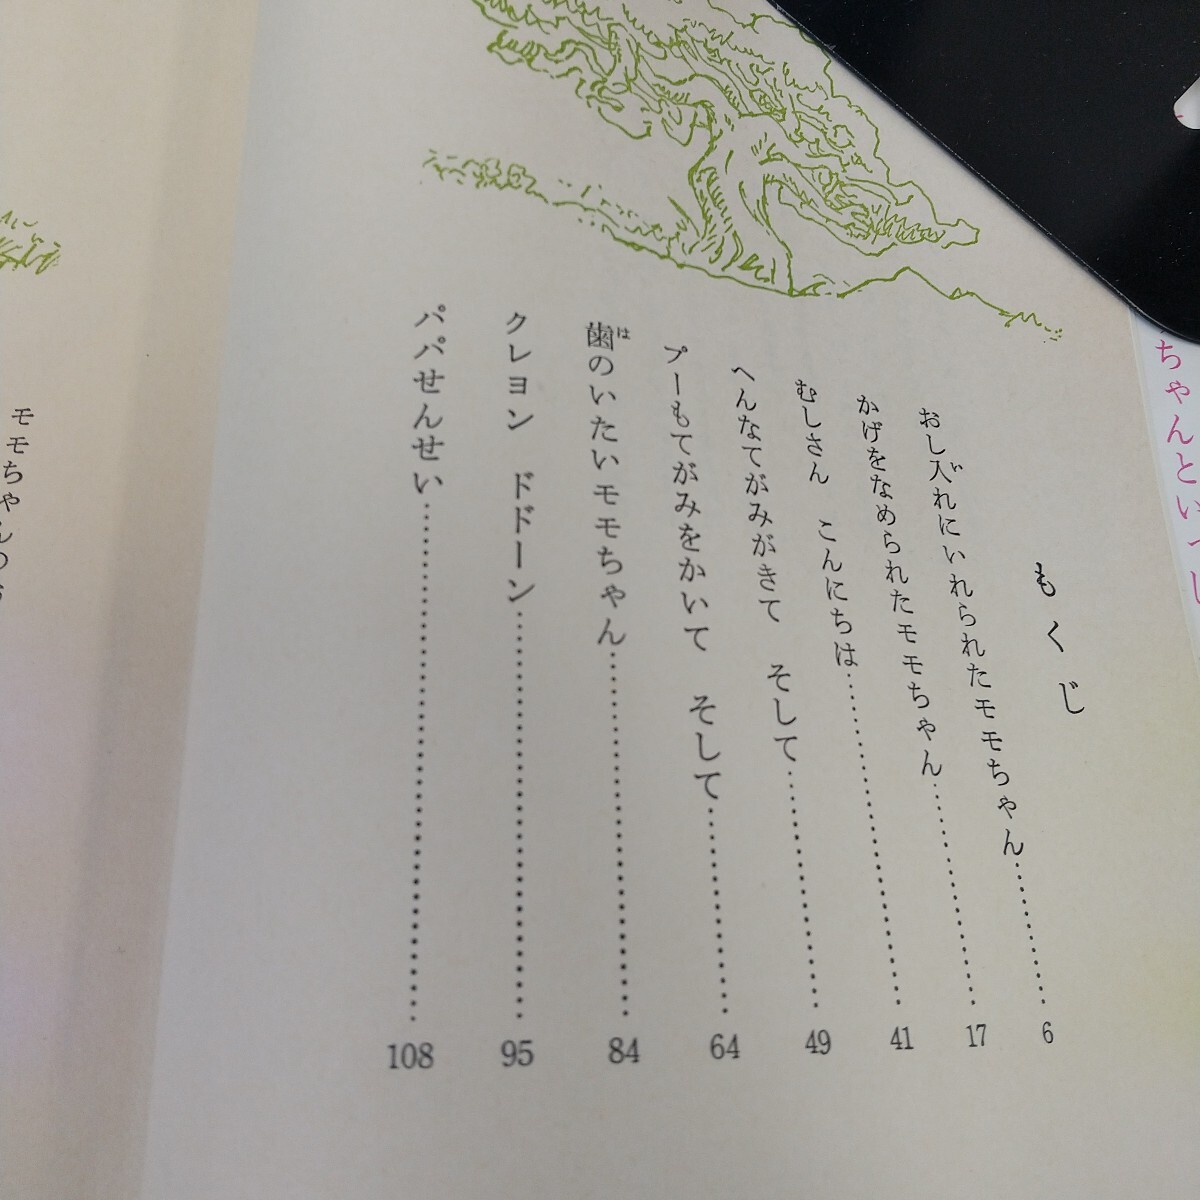 ちゃんといっし
もくじ
おし入れにいれられたモモちゃん……………6
かげをなめられたモモちゃん……………17
むしさん　こんにちは……………41
へんなてがみがきて　そして……………49
プーもてがみをかいて　そして……………64
歯のいたいモモちゃん……………84
クレヨン　ドドーン……………95
パパせんせい……………108
モモちゃんのお